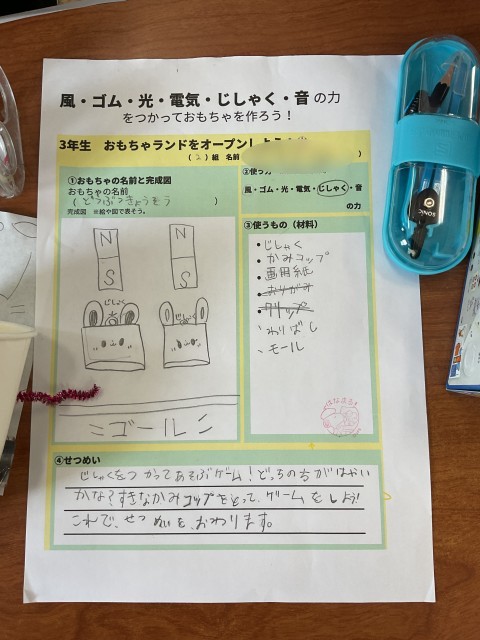 風・ゴム・光・電気・じしゃく・音 の力
をつかっておもちゃを作ろう！
3年生 おもちゃランドをオープンし
( 2 ) 組 名前 )
①おもちゃの名前と完成図
おもちゃの名前
( どうぶつきょうそう )
完成図 ※絵や図で表そう。
N N
S S
じしゃく じしゃく
ゴール
②使う力
風・ゴム・光・電気・じしゃく・音
の力
③使うもの（材料）
・じしゃく
・かみコップ
・画用紙
・おりがみ
・クリップ
・わりばし
・モール
④せつめい
じしゃくをつかってあそぶゲーム！どっちの方がはやい
かな？すきなかみコップをとって、ゲームをしよう！
これで、せつめいを、おわります。
SONIC